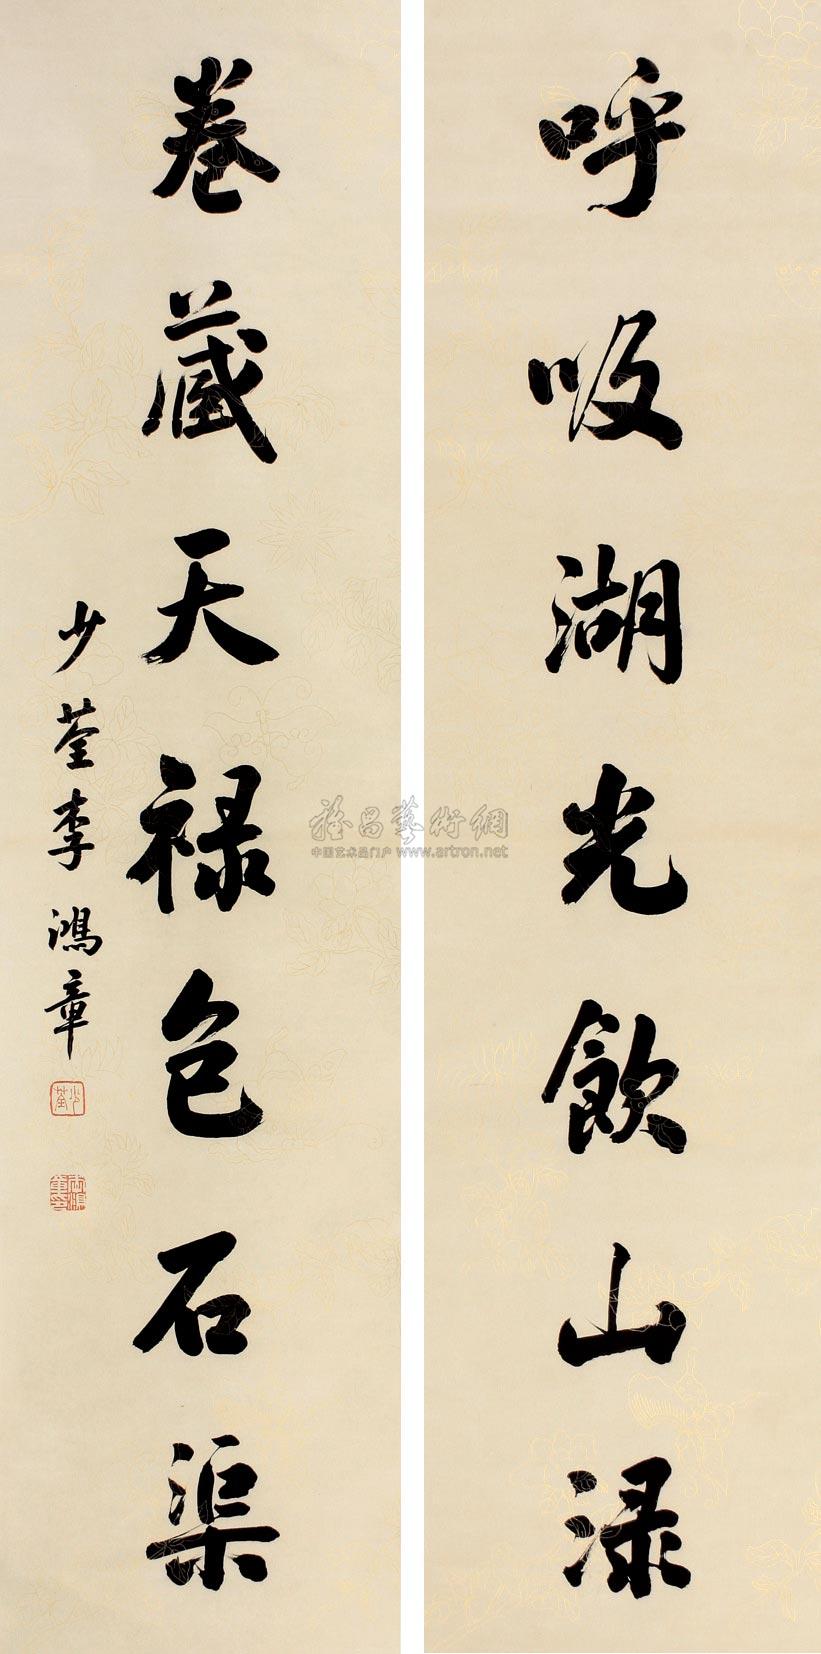 呼吸湖光飲山渌
卷藏天禄包石渠
少荃李鴻章
少荃
雅昌藝術網
中国艺术品门户 www.artron.net